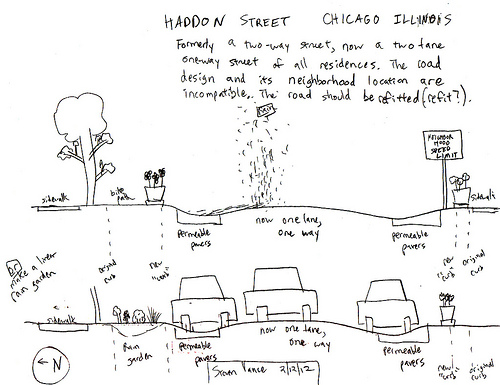 HADDON STREET CHICAGO ILLINOIS
Formerly a two-way street, now a two lane
oneway street of all residences. The road
design and its neighborhood location are
incompatible. The road should be refitted (refit?).
rain
NEIGHBOR
HOOD
SPEED
LIMIT
sidewalk
bike
path
sidewalk
permeable
pavers
now one lane,
one way
permeable
pavers
or
make a linear
rain garden
original
curb
new
"curb"
new
"curb"
original
curb
sidewalk
Rain
garden
permeable
pavers
now one lane,
one way
permeable
pavers
new
"curb"
original
curb
N
Steven Vance 2/12/12